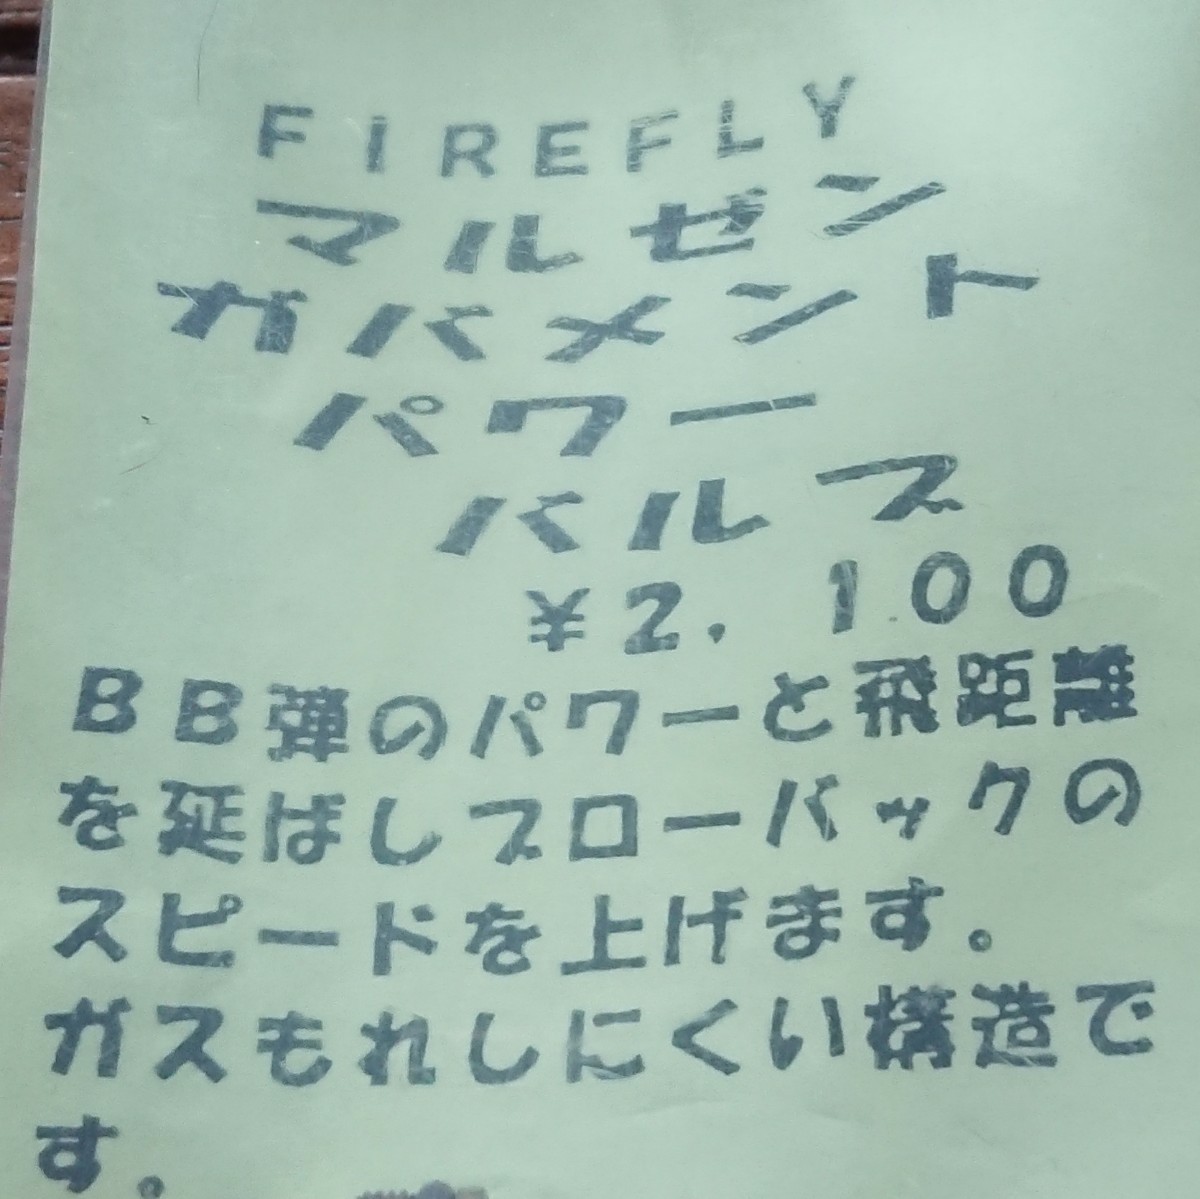 FIREFLY
マルゼン
ガバメント
パワー
バルブ
¥2.100
BB弾のパワーと飛距離
を延ばしブローバックの
スピードを上げます。
ガスもれしにくい構造で
す。